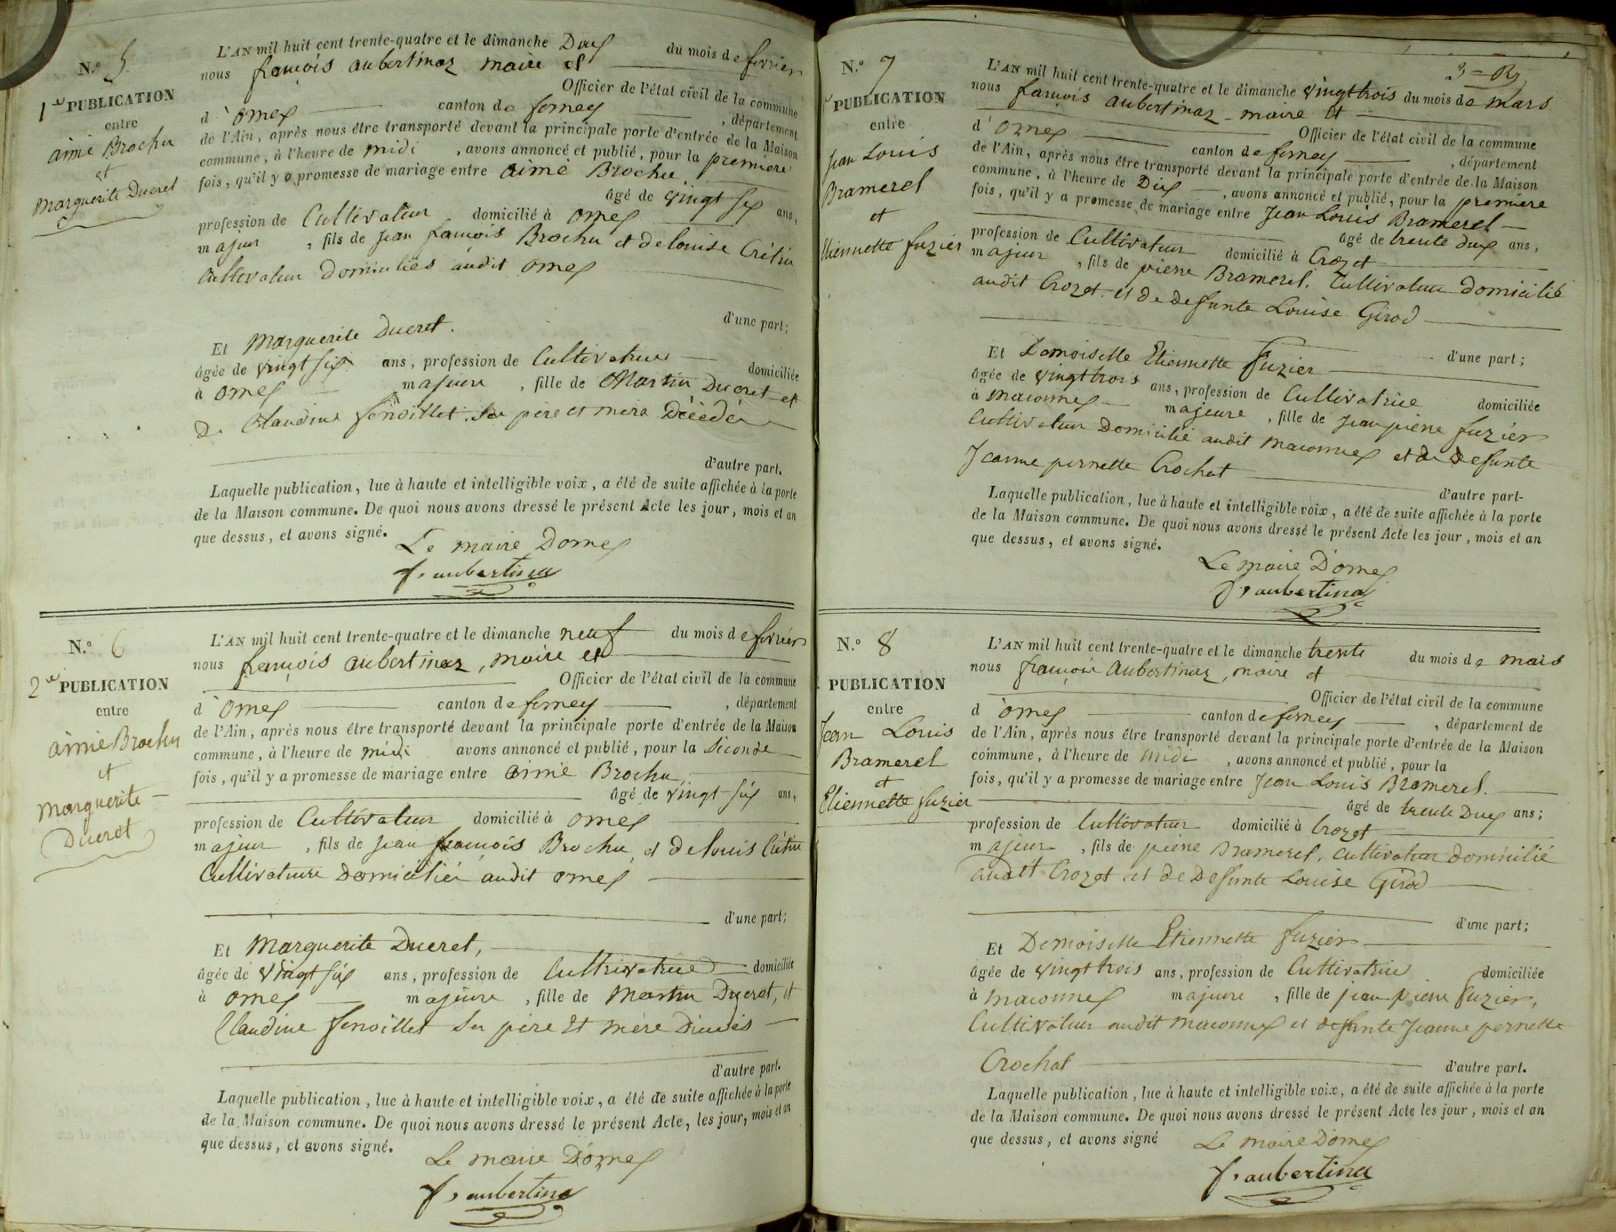 N.º 5
1re PUBLICATION
entre
aimé Brochu
et
Marguerite Ducret
L'AN mil huit cent trente-quatre et le dimanche Deux du mois de fevrier
nous françois aubertinaz maire et
Officier de l'état civil de la commune
d'ornex canton de ferney, département
de l'Ain, après nous être transporté devant la principale porte d'entrée de la Maison
commune, à l'heure de midi, avons annoncé et publié, pour la première
fois, qu'il y a promesse de mariage entre aimé Brochu
âgé de vingt six ans,
profession de Cultivateur domicilié à ornex
majeur, fils de jean françois Brochu et de louise Crétin
cultivateur domiciliés audit ornex
d'une part;
Et Marguerite Ducret.
âgée de vingt six ans, profession de Cultivatrice domiciliée
à ornex majeure, fille de Martin Ducret et
De Claudine fenoillet, Ses père et mère Décédés
d'autre part.
Laquelle publication, lue à haute et intelligible voix, a été de suite affichée à la porte
de la Maison commune. De quoi nous avons dressé le présent Acte les jour, mois et an
que dessus, et avons signé.
Le maire Dornex
f. aubertinaz
N.º 6
2e PUBLICATION
entre
aimé Brochu
et
Marguerite
Ducret
L'AN mil huit cent trente-quatre et le dimanche neuf du mois de fevrier
nous françois aubertinaz, maire et
Officier de l'état civil de la commune
d'ornex canton de ferney, département
de l'Ain, après nous être transporté devant la principale porte d'entrée de la Maison
commune, à l'heure de midi avons annoncé et publié, pour la Seconde
fois, qu'il y a promesse de mariage entre aimé Brochu
âgé de vingt six ans,
profession de Cultivateur domicilié à ornex
majeur, fils de jean françois Brochu et de louis Crétin
Cultivature Domiciliés audit ornex
d'une part;
Et Marguerite Ducret,
âgée de vingt six ans, profession de Cultrivatrice domiciliée
à ornex majeure, fille de Martin Ducret, et
Claudine fenoillet Ses père Et mère Décédés
d'autre part.
Laquelle publication, lue à haute et intelligible voix, a été de suite affichée à la porte
de la Maison commune. De quoi nous avons dressé le présent Acte, les jour, mois et an
que dessus, et avons signé.
Le maire Dornex
f. aubertinaz
N.º 7
PUBLICATION
entre
Jean Louis
Bramerel
et
Etiennette fuzier
L'AN mil huit cent trente-quatre et le dimanche vingttrois du mois de mars
nous françois aubertinaz maire et
Officier de l'état civil de la commune
d'ornex canton de ferney, département
de l'Ain, après nous être transporté devant la principale porte d'entrée de la Maison
commune, à l'heure de Dix, avons annoncé et publié, pour la première
fois, qu'il y a promesse de mariage entre Jean Louis Bramerel
âgé de trente Deux ans,
profession de Cultivateur domicilié à Crozet
majeur, fils de pierre Bramerel. Cultivateur domicilié
audit Crozet et de defunte Louise Girod
d'une part;
Et Demoiselle Etiennette fuzier
âgée de vingttrois ans, profession de Cultivatrice domiciliée
à maconnex majeure, fille de jean pierre fuzier
Cultivateur Domicilié audit maconnex et de defunte
Jeanne pernette Crochat
d'autre part.
Laquelle publication, lue à haute et intelligible voix, a été de suite affichée à la porte
de la Maison commune. De quoi nous avons dressé le présent Acte les jour, mois et an
que dessus, et avons signé.
Le maire D'ornex
f. aubertinaz
N.º 8
PUBLICATION
entre
Jean Louis
Bramerel
et
Etiennette fuzier
L'AN mil huit cent trente-quatre et le dimanche trente du mois de mars
nous françois aubertinaz, maire et
Officier de l'état civil de la commune
d'ornex canton de ferney, département de
de l'Ain, après nous être transporté devant la principale porte d'entrée de la Maison
commune, à l'heure de midi, avons annoncé et publié, pour la
fois, qu'il y a promesse de mariage entre Jean Louis Bramerel.
âgé de trente Deux ans;
profession de Cultivateur domicilié à Crozet
majeur, fils de pierre Bramerel, cultivateur domicilié
audit Crozet et de Defunte Louise Girod
d'une part;
Et Demoiselle Etiennette fuzier
âgée de vingttrois ans, profession de Cultivatrice domiciliée
à maconnex majeure, fille de jean pierre fuzier,
Cultivateur audit maconnex et defunte Jeanne pernette
Crochat
d'autre part.
Laquelle publication, lue à haute et intelligible voix, a été de suite affichée à la porte
de la Maison commune. De quoi nous avons dressé le présent Acte les jour, mois et an
que dessus, et avons signé
Le maire Dornex
f. aubertinaz